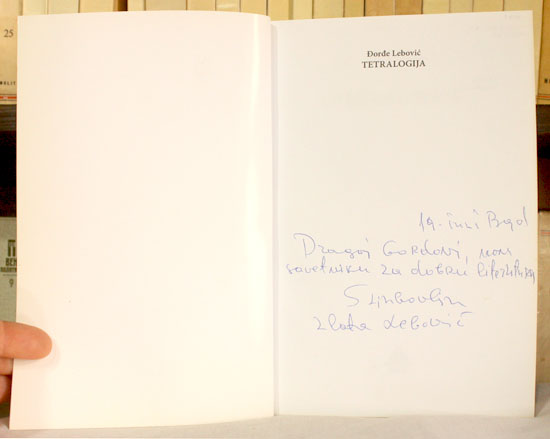 25
Đorđe Lebović
TETRALOGIJA
19. juni Bgd
Dragoj Gordani, mom
savetniku za dobru literaturu
S ljubavlju
Zlata Lebović
9